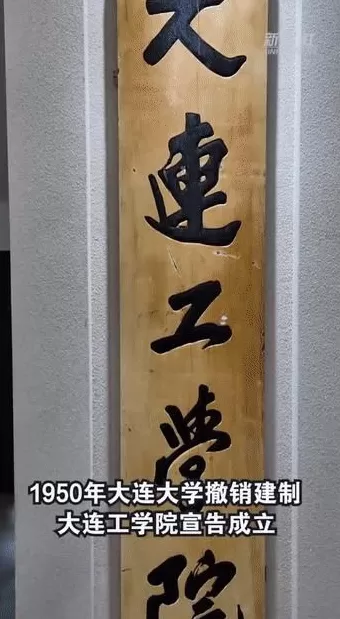 大連工學院
1950年大连大学撤销建制
大连工学院宣告成立